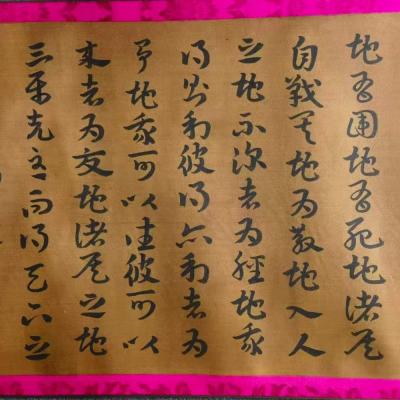 地有圍地有死地諸侯
自戰其地為散地入人
之地不深者為輕地我
得則利彼得亦利者為
爭地我可以往彼可以
來者為交地諸侯之地
三屬先至而得天下之